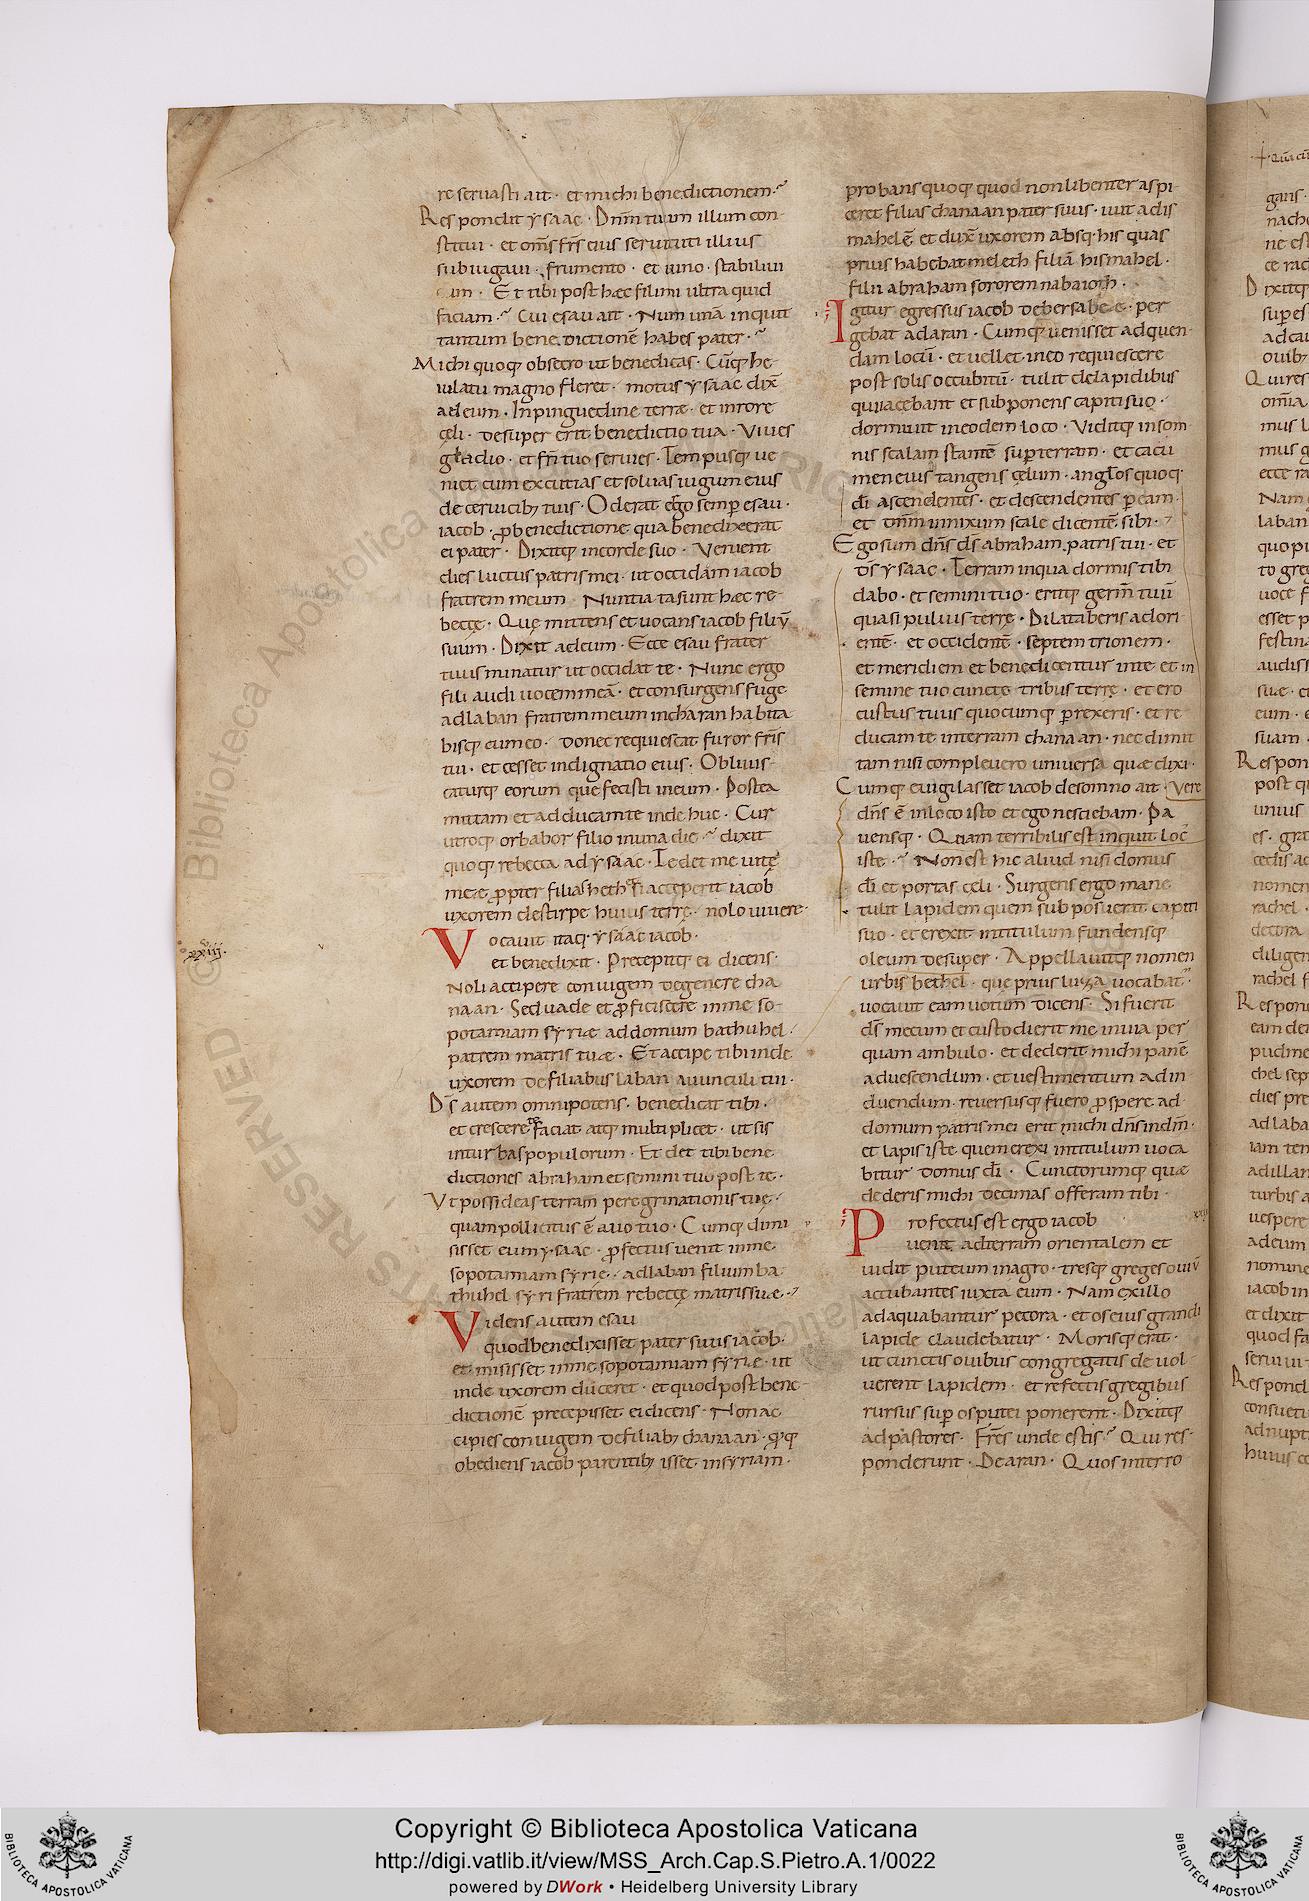 re seruasti ait · et michi benedictionem ·
Respondit ysaac · Dnm̄ tuum illum con-
stitui · et om̄s fr̄s eius seruituti illius
subiugaui · frumento · et uino · stabiliui
eum · Et tibi post hæc fili mi ultra quid
faciam · Cui esau ait · Num unā inquit
tantum benedictionē habes pater ·
Michi quoq; obsecro ut benedicas · Cūq; he-
iulatu magno fleret · motus ysaac dix̄
ad eum · In pinguedine terræ · et in rore
cęli · desuper erit benedictio tua · Viues
gladio · et fr̄i tuo seruies · Tempusq; ue
niet cum excutias et soluas iugum eius
de ceruicib; tuis · Oderat ergo semp̄ esau ·
iacob · p̄ benedictione qua benedixerat
ei pater · Dixitq; in corde suo · Venient
dies luctus patris mei · ut occidam iacob
fratrem meum · Nuntiata sunt hæc re-
beccę · Quę mittens et uocans iacob filiū
suum · Dixit ad eum · Ecce esau frater
tuus minatur ut occidat te · Nunc ergo
fili audi uocem meā · et consurgens fuge
ad laban fratrem meum in charan habita
bisq; cum eo · donec requiescat furor fr̄is
tui · et cesset indignatio eius · Obliuis-
caturq; eorum que fecisti in eum · Postea
mittam et adducam te inde huc · Cur
utroq; orbabor filio in una die · dixit
quoq; rebecca ad ysaac · Tedet me uitę
meæ p̄pter filias heth · si acceperit iacob
uxorem de stirpe huius terrę · nolo uiuere ·
Vocauit itaq; ysaac iacob ·
et benedixit · Precepitq; ei dicens ·
Noli accipere coniugem de genere cha
naan · Sed uade et p̄ficiscere in me so-
potamiam syriæ ad domum bathuhel ·
patrem matris tuæ · Et accipe tibi inde
uxorem de filiabus laban auunculi tui ·
Ds̄ autem omnipotens · benedicat tibi ·
et crescere te faciat atq; multiplicet · ut sis
in turbas populorum · Et det tibi bene
dictiones abraham et semini tuo post te ·
Vt possideas terram peregrinationis tuę ·
quam pollicitus ē auo tuo · Cumq; dimi
sisset eum ysaac · p̄fectus uenit in me
sopotamiam syrie · ad laban filium ba
thuhel syri fratrem rebeccę matris suæ ·
Videns autem esau
quod benedixisset pater suus iacob ·
et misisset in me sopotamiam syriæ · ut
inde uxorem duceret · et quod post bene-
dictionē precepisset ei dicens · Non ac
cipies coniugem de filiab; chanaan · q̄q;
obediens iacob parentib; isset in syriam ·
xxiij.
probans quoq; quod non libenter aspi-
ceret filias chanaan pater suus · iuit ad is
mahelē et dux̄ uxorem absq; his quas
prius habebat meleth filiā hismahel ·
filii abraham sororem nabaioth ·
Igitur egressus iacob de bersabee · per
gebat ad aran · Cumq; uenisset ad quen-
dam locū · et uellet in eo requiescere
post solis occubitū · tulit de lapidibus
qui iacebant et subponens capiti suo ·
dormiuit in eodem loco · Viditq; in som
nis scalam stantē sup̄ terram · et cacu
men eius tangens cęlum · anglos quoq;
dī ascendentes · et descendentes p̄ eam ·
et dnm̄ innixum scale dicentē sibi ·
Ego sum dn̄s ds̄ abraham patris tui · et
ds̄ ysaac · Terram in qua dormis tibi
dabo · et semini tuo · eritq; germ̄ tuū
quasi puluis terrę · Dilataberis ad ori-
entē · et occidentē · septemtrionem ·
et meridiem et benedicentur in te et in
semine tuo cuncte tribus terrę · et ero
custus tuus quocumq; p̄rexeris · et re
ducam te in terram chanaan · nec dimit
tam nisi compleuero uniuersa quæ dixi ·
Cumq; euigilasset iacob de somno ait · Vere
dn̄s ē in loco isto et ego nesciebam · Pa
uensq; · Quam terribilis est inquit loc̄
iste · Non est hic aliud nisi domus
dī et portas cęli · Surgens ergo mane
tulit lapidem quem subposuerat capiti
suo · et erexit in titulum fundensq;
oleum desuper · Appellauitq; nomen
urbis bethel · que prius luza uocabat̄
uocauit eam uotum dicens · Si fuerit
ds̄ mecum et custodierit me in uia per
quam ambulo · et dederit michi panē
ad uescendum · et uestimentum ad in
duendum · reuersusq; fuero p̄spere ad
domum patris mei erit michi dn̄s in dm̄ ·
et lapis iste quem erexi in titulum uoca
bitur domus dī · Cunctorumq; quæ
dederis michi decimas offeram tibi ·
Profectus est ergo iacob
uenit ad terram orientalem et
uidit puteum in agro · tresq; greges ouiū
accubantes iuxta eum · Nam ex illo
adaquabantur pecora · et os eius grandi
lapide claudebatur · Morisq; erat ·
ut cunctis ouibus congregatis deuol-
uerent lapidem · et refectis gregibus
rursus sup̄ os putei ponerent · Dixitq;
ad pastores · Fr̄es unde estis · Qui res-
ponderunt · De aran · Quos interro
Copyright © Biblioteca Apostolica Vaticana
http://digi.vatlib.it/view/MSS_Arch.Cap.S.Pietro.A.1/0022
powered by DWork • Heidelberg University Library
BIBLIOTECA APOSTOLICA VATICANA
BIBLIOTECA APOSTOLICA VATICANA